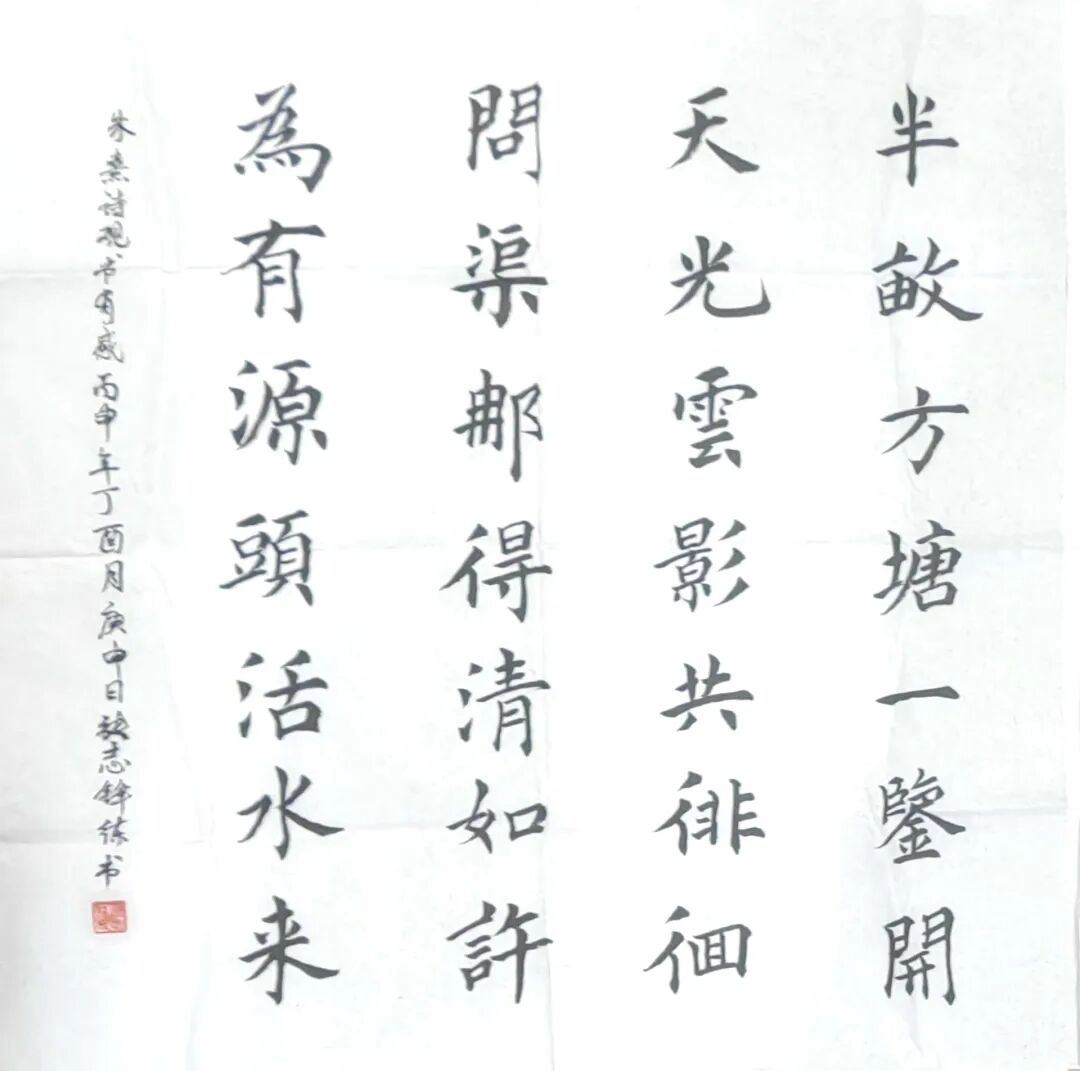 半畝方塘一鑒開
天光雲影共徘徊
問渠那得清如許
為有源頭活水来
朱熹诗观书有感丙申年丁酉月庚申日志锋练书